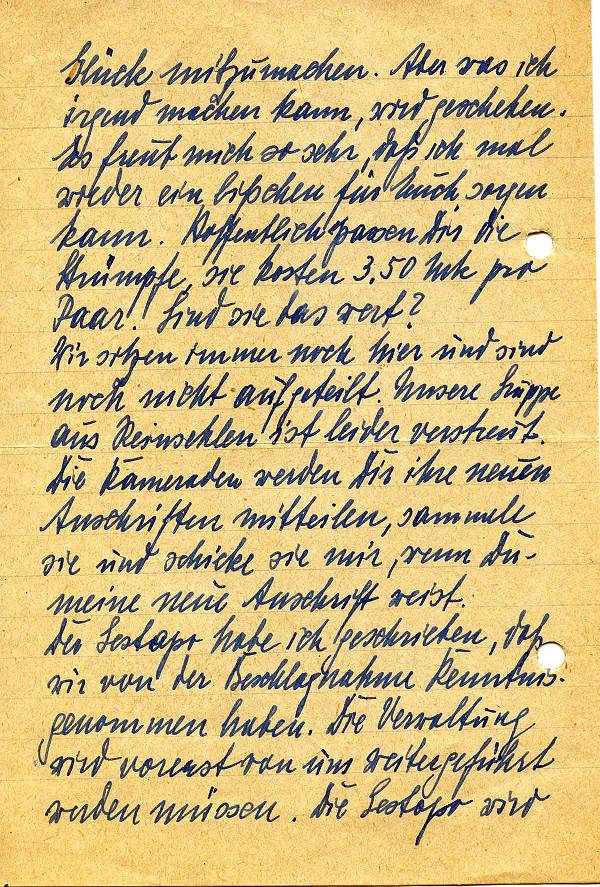 Glück mitzumachen. Aber was ich
irgend machen kann, wird geschehen.
Es freut mich so sehr, daß ich mal
wieder ein bißchen für Euch sorgen
kann. Hoffentlich passen Dir die
Strümpfe, sie kosten 3,50 Mk pro
Paar. Sind sie das wert?
Wir sitzen immer noch hier und sind
noch nicht aufgeteilt. Unsere Gruppe
aus Reinsehlen ist leider verstreut.
Die Kameraden werden Dir ihre neuen
Anschriften mitteilen, sammele
sie und schicke sie mir, wenn Du
meine neue Anschrift weist.
Der Gestapo habe ich geschrieben, daß
wir von der Beschlagnahme Kenntnis
genommen haben. Die Verwaltung
wird vorerst von uns weitergeführt
werden müssen. Die Gestapo wird